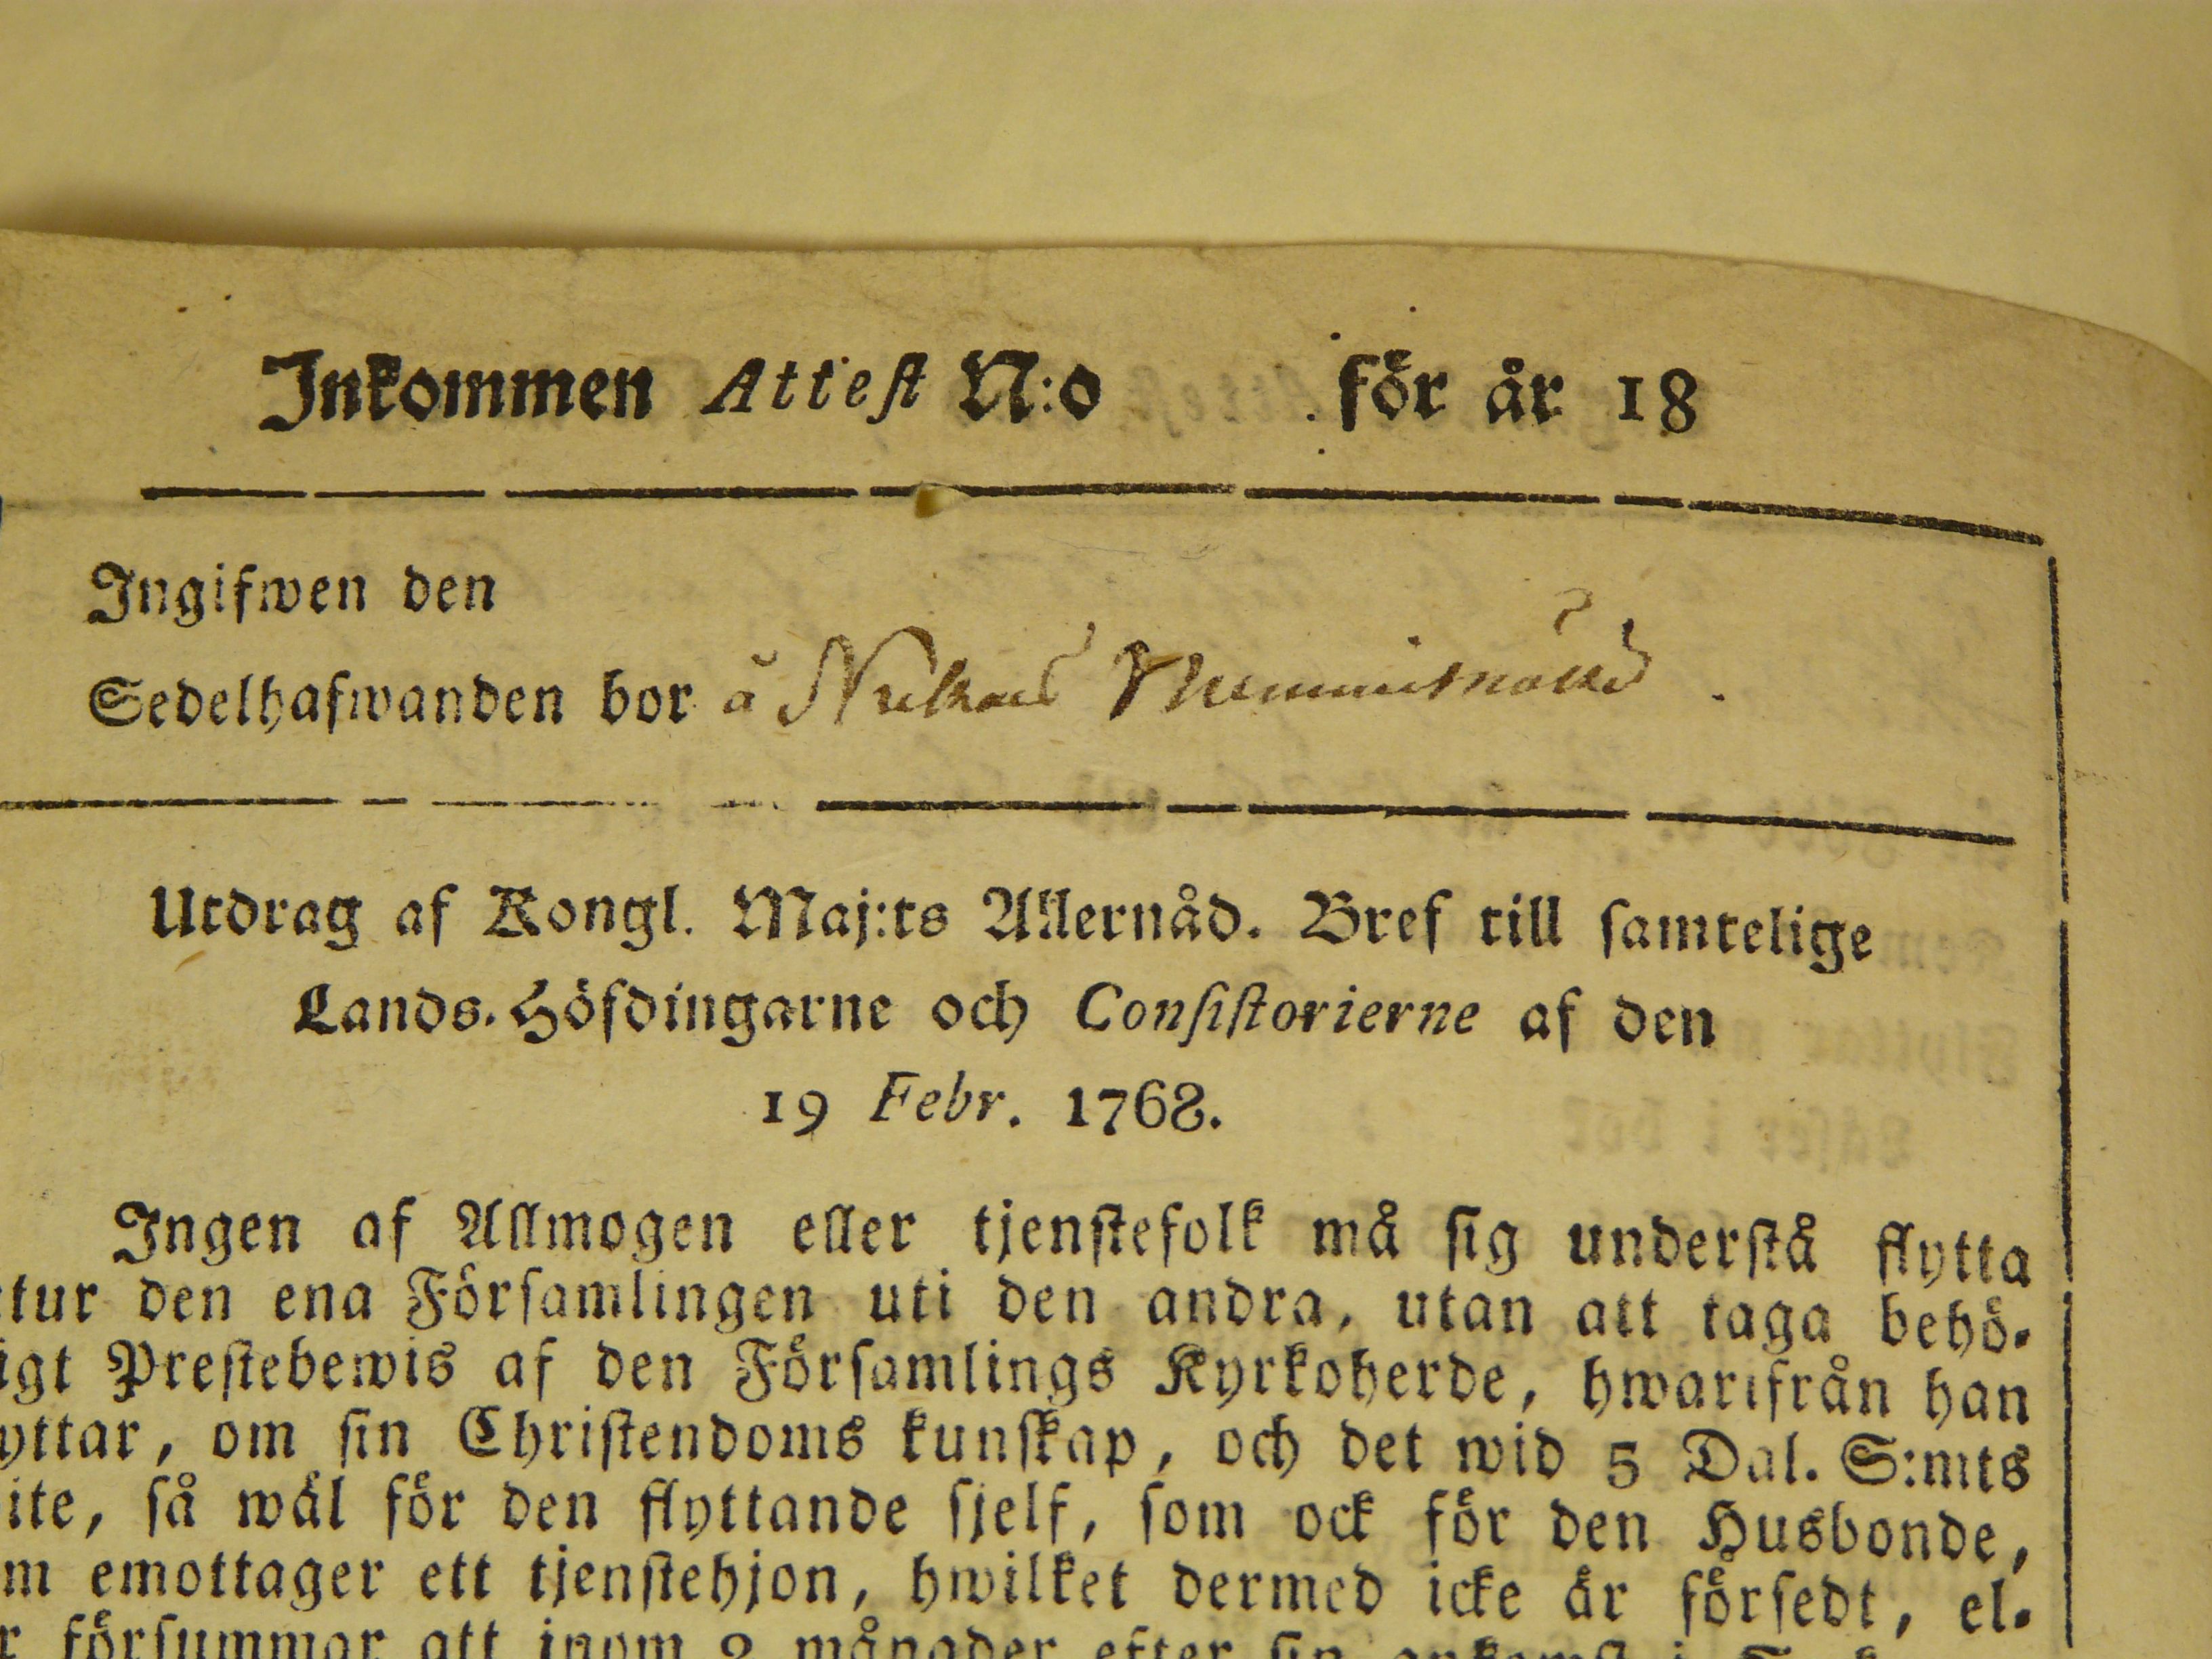 Inkommen Attest N:o för år 18
Ingifwen den
Sedelhafwanden bor å
Utdrag af Kongl. Maj:ts Allernåd. Bref till samtelige
Lands-Höfdingarne och Consistorierne af den
19 Febr. 1768.
Ingen af Allmogen eller tjenstefolk må sig understå flytta
tur den ena Församlingen uti den andra, utan att taga behö-
igt Prestebewis af den Församlings Kyrkoherde, hwarifrån han
yttar, om sin Christendoms kunskap, och det wid 5 Dal. S:mts
ite, så wäl för den flyttande sjelf, som ock för den Husbonde,
m emottager ett tjenstehjon, hwilket dermed icke är försedt, el-
r försummar att inom 2 månader efter sin ankomst i